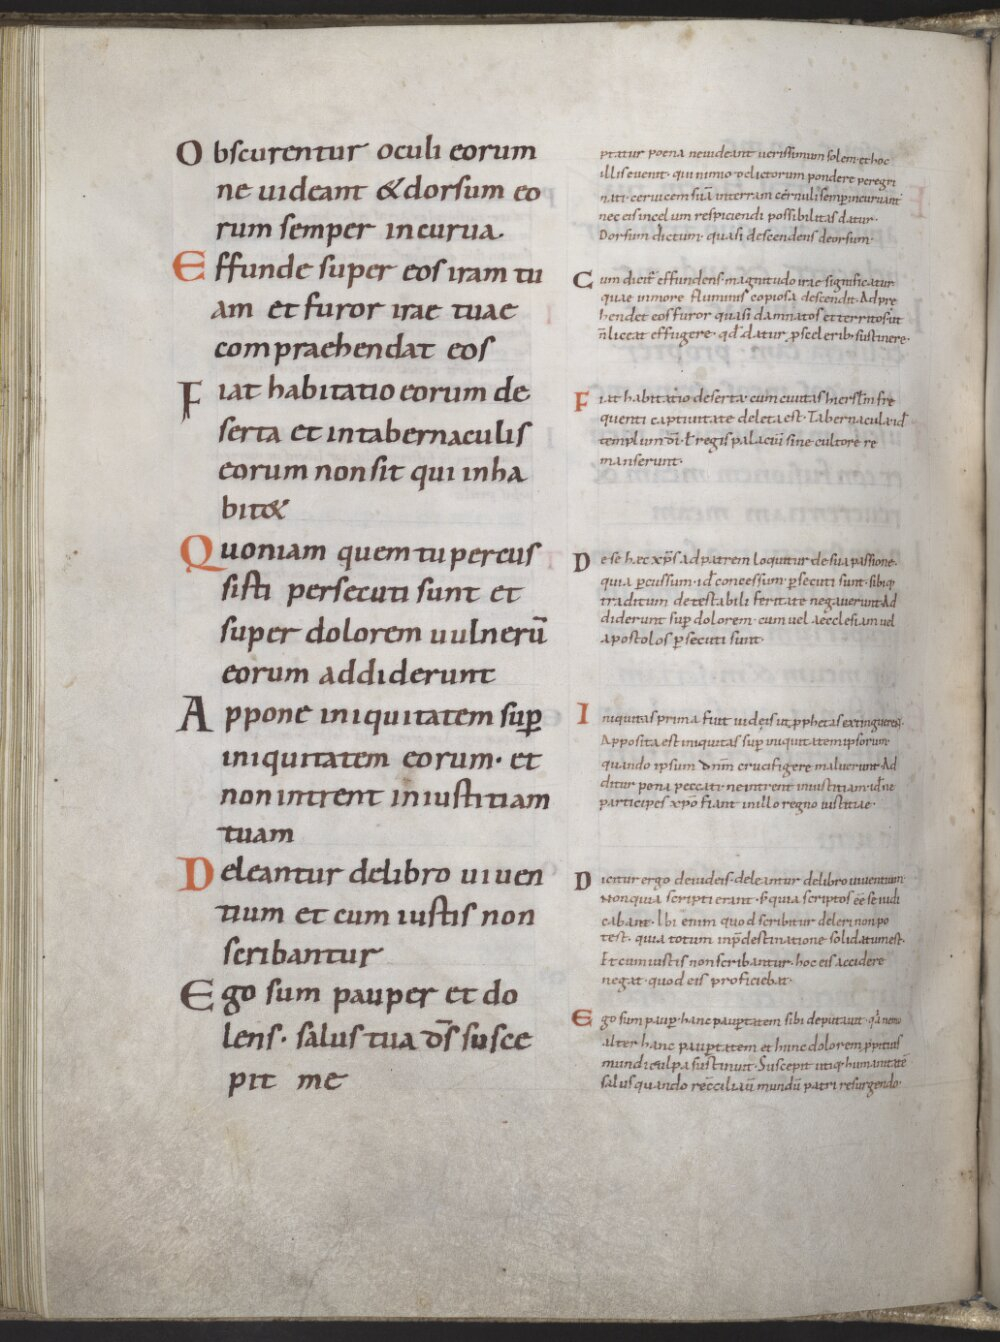 Obscurentur oculi eorum
ne uideant &dorsum eo
rum semper incurua
Effunde super eos iram tu
am et furor irae tuae
compraehendat eos
Fiat habitatio eorum de
serta et in tabernaculis
eorum non sit qui inha
bit&
Quoniam quem tu percus
sisti persecuti sunt et
super dolorem uulnerū
eorum addiderunt
Appone iniquitatem sup̄
iniquitatem eorum· et
non intrent in iustitiam
tuam
Deleantur de libro uiuen
tium et cum iustis non
scribantur
Ego sum pauper et do
lens· salus tua d̄s susce
pit me
ptatur poena ne uideant uerissimum solem· et hoc
illis euenit· qui nimio delictorum pondere peregri
nati· ceruicem suā in terram cernuli semp̄ incuruant
nec eis in celum respiciendi possibilitas datur·
Dorsum dictum· quasi descendens deorsum·
Cum dicit̄ effundens· magnitudo irae significatur
quae in more fluminis copiosa descendit· Adpre
hendet eos furor quasi damnatos et territos· ut
n̄ liceat effugere· qd̄ datur p̄ sceleribꝫ sustinere·
Fiat habitatio deserta· cum ciuitas hierslm̄ fre
quenti captiuitate deleta est· Tabernacula· id̄
templum dī· ł regis palaciū sine cultore re
manserunt·
De se haec xp̄s ad patrem loquitur de sua passione·
quia p̄cussum· id̄ concessum p̄secuti sunt· sibiqꝫ
traditum detestabili feritate negauerunt· Ad
diderunt sup̄ dolorem· cum uel aecclesiam uel
apostolos p̄secuti sunt·
Iniquitas prima fuit iudeis ut p̄phetas extinguerent·
Apposita est iniquitas sup̄ iniquitatem ipsorum·
quando ipsum dn̄m crucifigere maluerunt· Ad
ditur pena peccati· ne intrent in iustitiam· id̄ ne
participes xp̄o fiant in illo regno iustitiae·
Dicitur ergo de iudeis· deleantur de libro uiuentium·
Non quia scripti erant· s; quia scriptos ēē se iudi
cabant· Ibi enim quod scribitur deleri non po
test· quia totum in p̄destinatione solidatum est·
Et cum iustis non scribantur· hoc eis accidere
negat· quod eis proficiebat·
Ego sum paup̄· hanc paup̄tatem sibi deputauit· q̄a nemo
alter hanc paup̄tatem et hunc dolorem p̄pitius
mundi culpa sustinuit· Suscepit utiqꝫ humanitatē
salus quando reconciliauit mundū patri resurgendo·